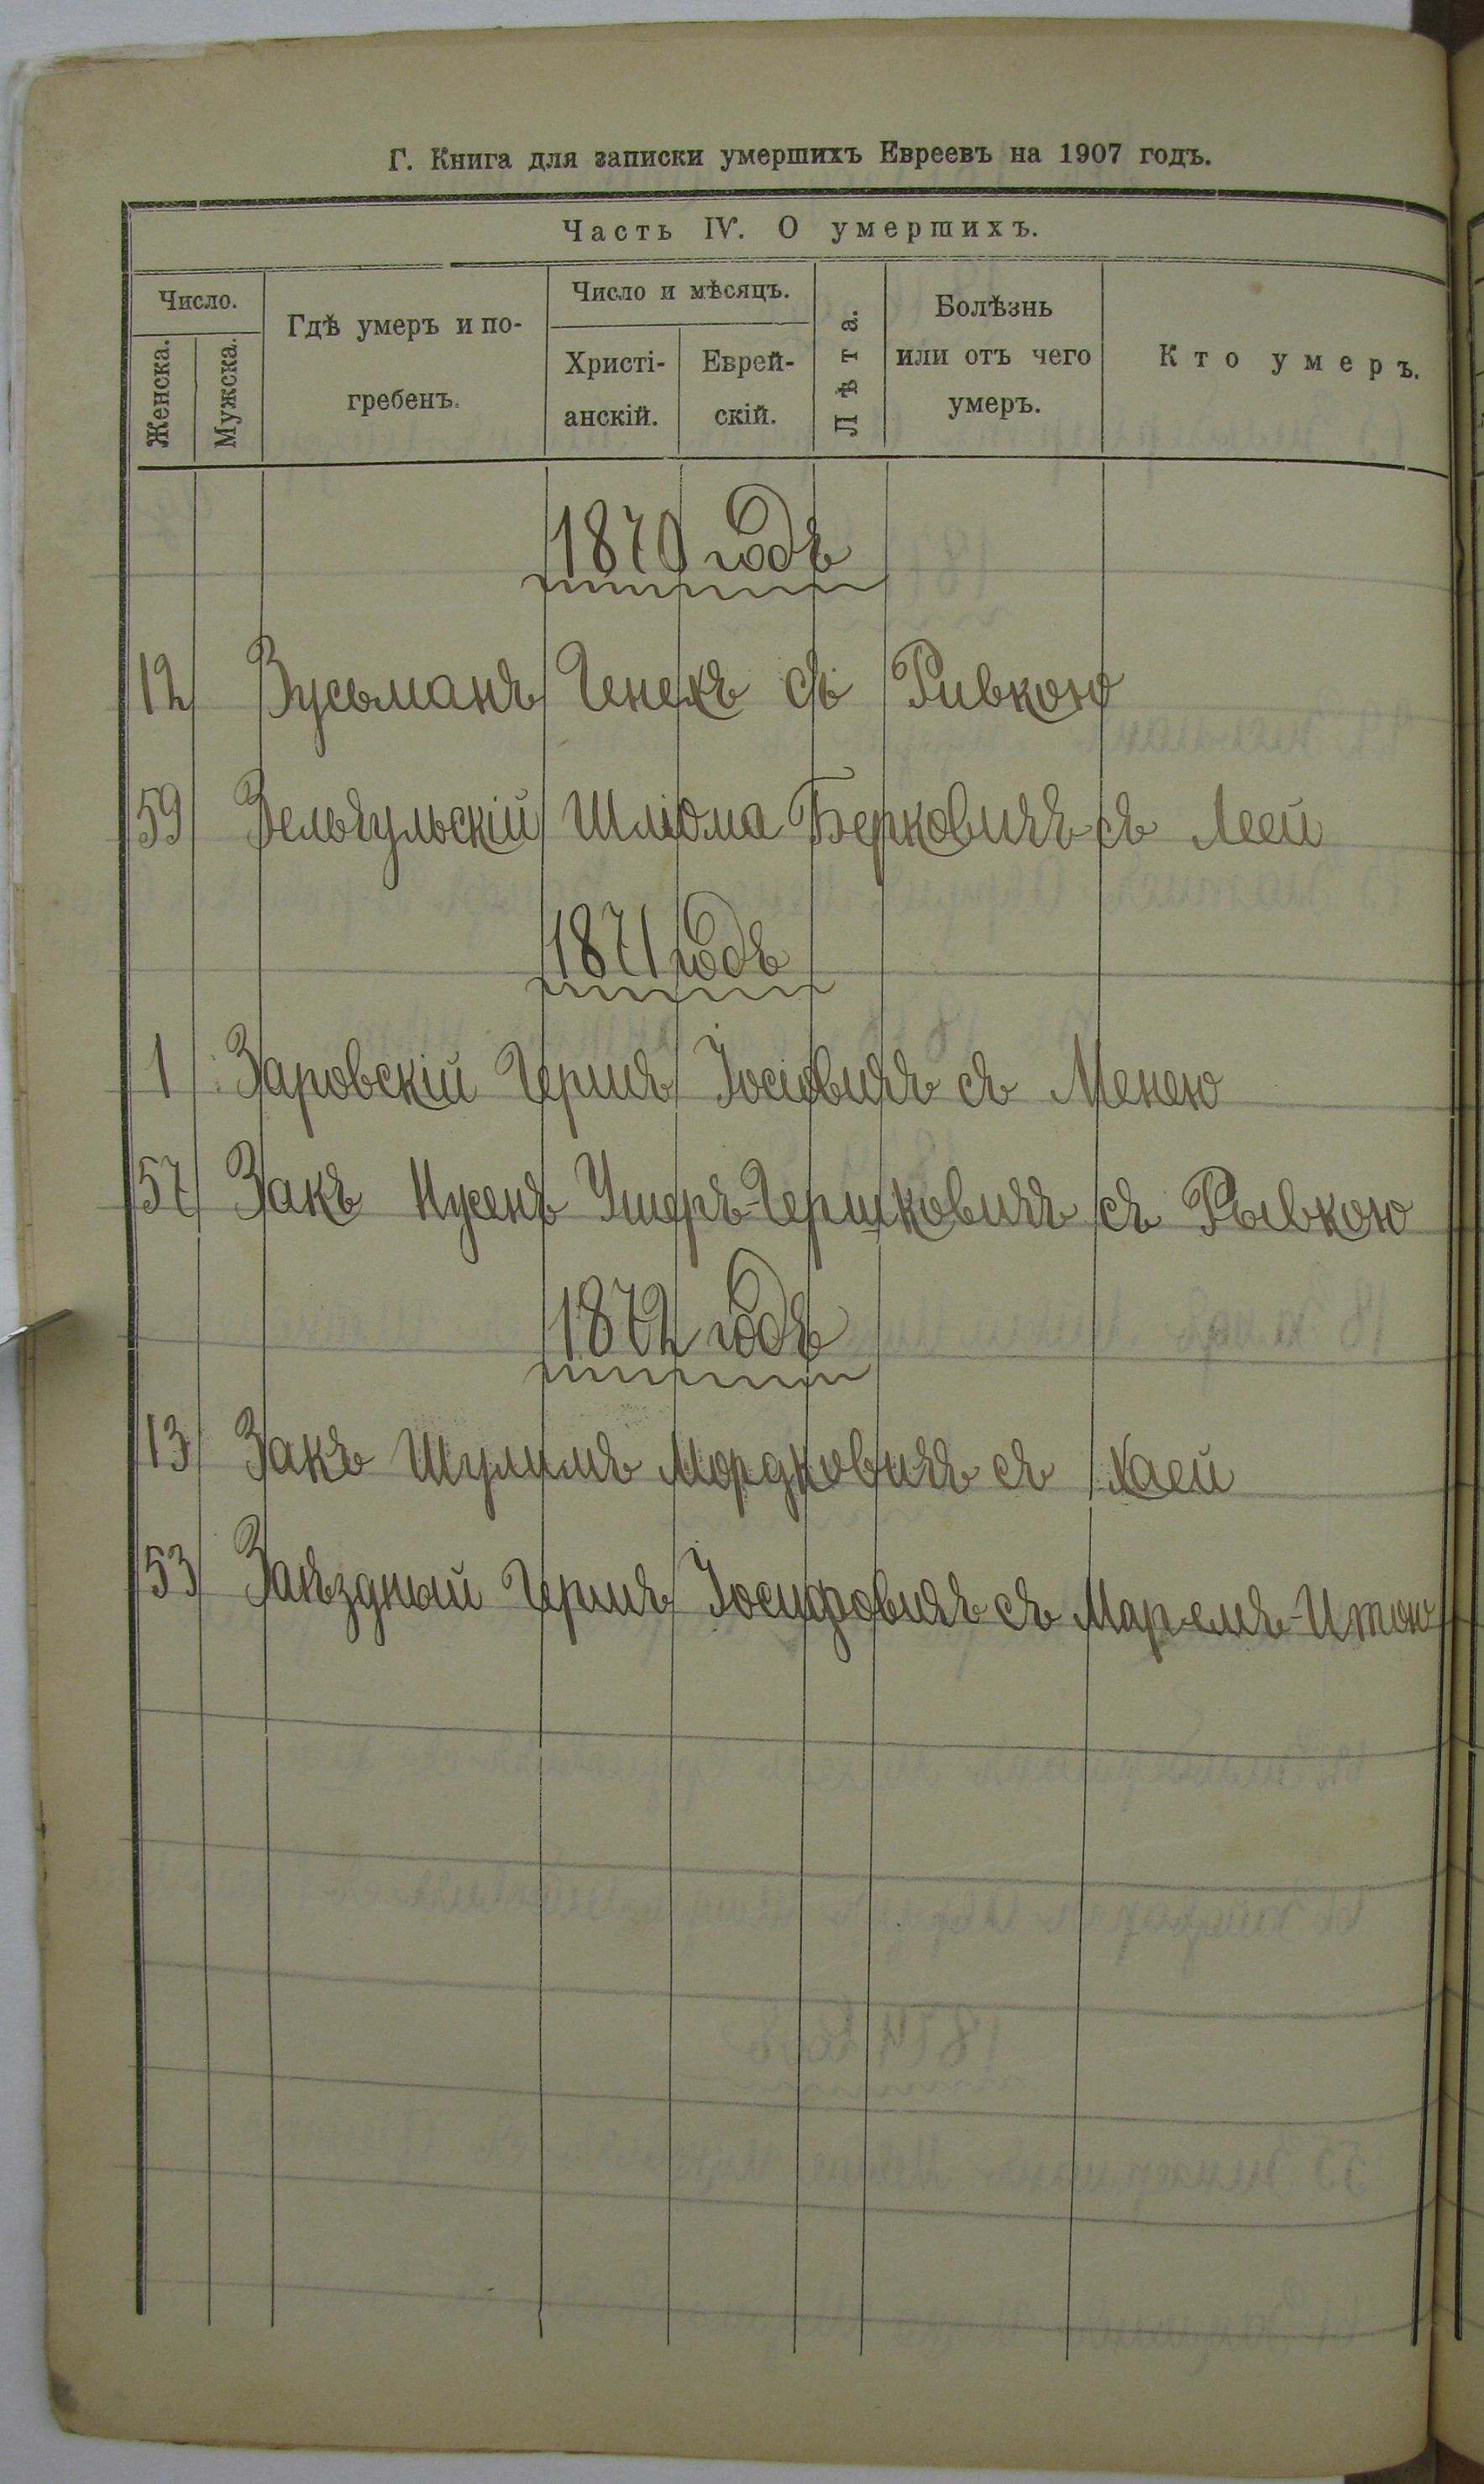 Г. Книга для записки умершихъ Евреевъ на 1907 годъ.
Часть IV. О умершихъ.
Число.
Женска.
Мужска.
Гдѣ умеръ и по-
гребенъ.
Число и мѣсяцъ.
Христі-
анскій.
Еврей-
скій.
Лѣта.
Болѣзнь
или отъ чего
умеръ.
Кто умеръ.
1870 годъ
12 Зусьманъ Генехъ съ Ривкою
59 Шліома Берковичъ съ Леей
1871 годъ
1 Заровскій Гершъ Іосіовичъ съ Менею
57 Закъ Нусенъ Ушеръ-Гершковичъ съ Рывкою
1872 годъ
13 Закъ Шулимъ Мордковичъ съ Хаей
53 Заѣздный Гершъ Іосифовичъ съ Марьемъ-Итою